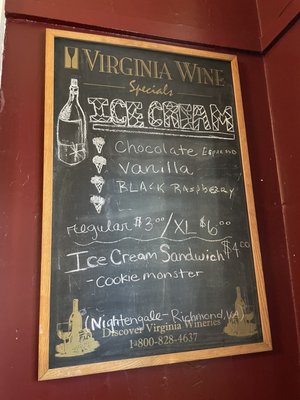 VIRGINIA WINE
Specials
ICE CREAM
Chocolate Espresso
Vanilla
BLACK Raspberry
regular $3.00/XL $6.00
Ice Cream Sandwich $4.00
-cookie monster
(Nightengale-Richmond, VA)
Discover Virginia Wineries
1-800-828-4637